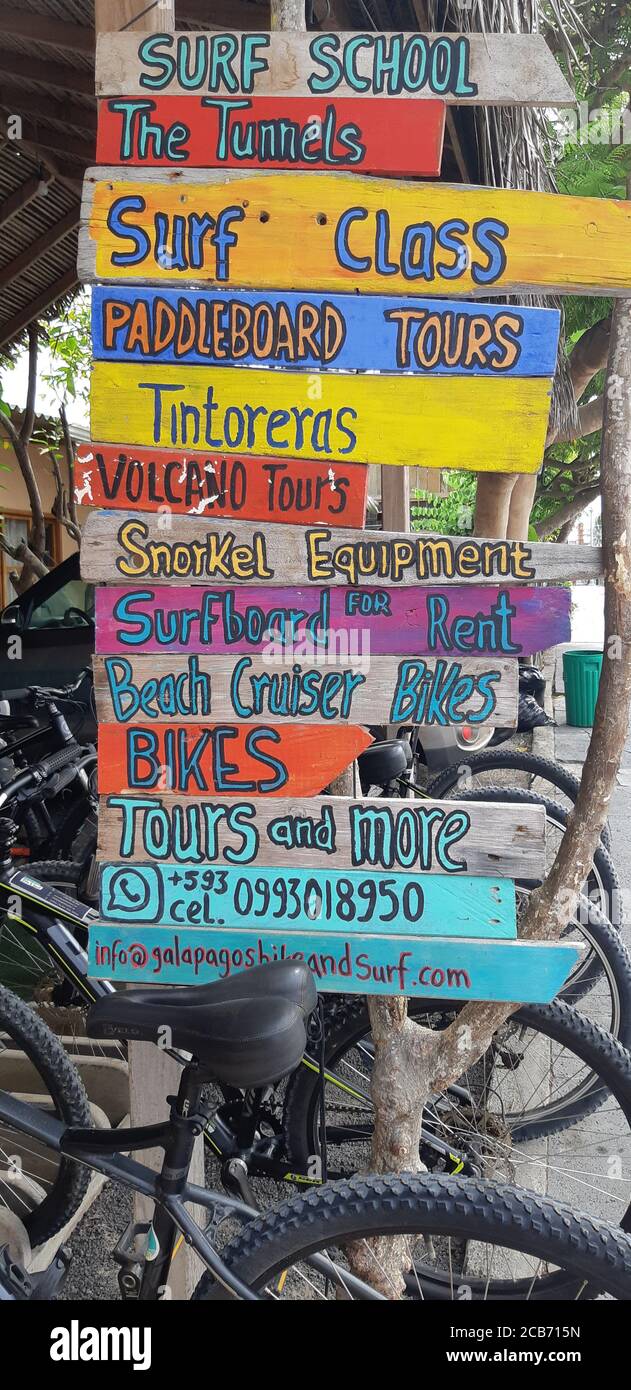 SURF SCHOOL
The Tunnels
Surf Class
PADDLEBOARD TOURS
Tintoreras
VOLCANO Tours
Snorkel Equipment
Surfboard FOR Rent
Beach Cruiser Bikes
BIKES
Tours and more
+593
cel. 0993018950
info@galapagosbikeandSurf.com
VELO
alamy
Image ID: 2CB715N
www.alamy.com